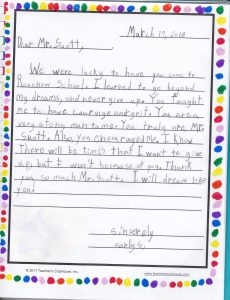 March 19, 2018
Dear Mr. Scott,
We were lucky to have you come to
School. I learned to go beyond
my dreams, and never give up. You taught
me to have courage and grit. You are a
very strong man to me. You truly are Mr.
Scott. Also, you encouraged me. I know
There will be times that I want to give
up, but I won't because of you. Thank
you so much Mr. Scott. I will dream like
you!
sincerely
© 2011 Teacher's Clubhouse, Inc.
www.teachersclubhouse.com